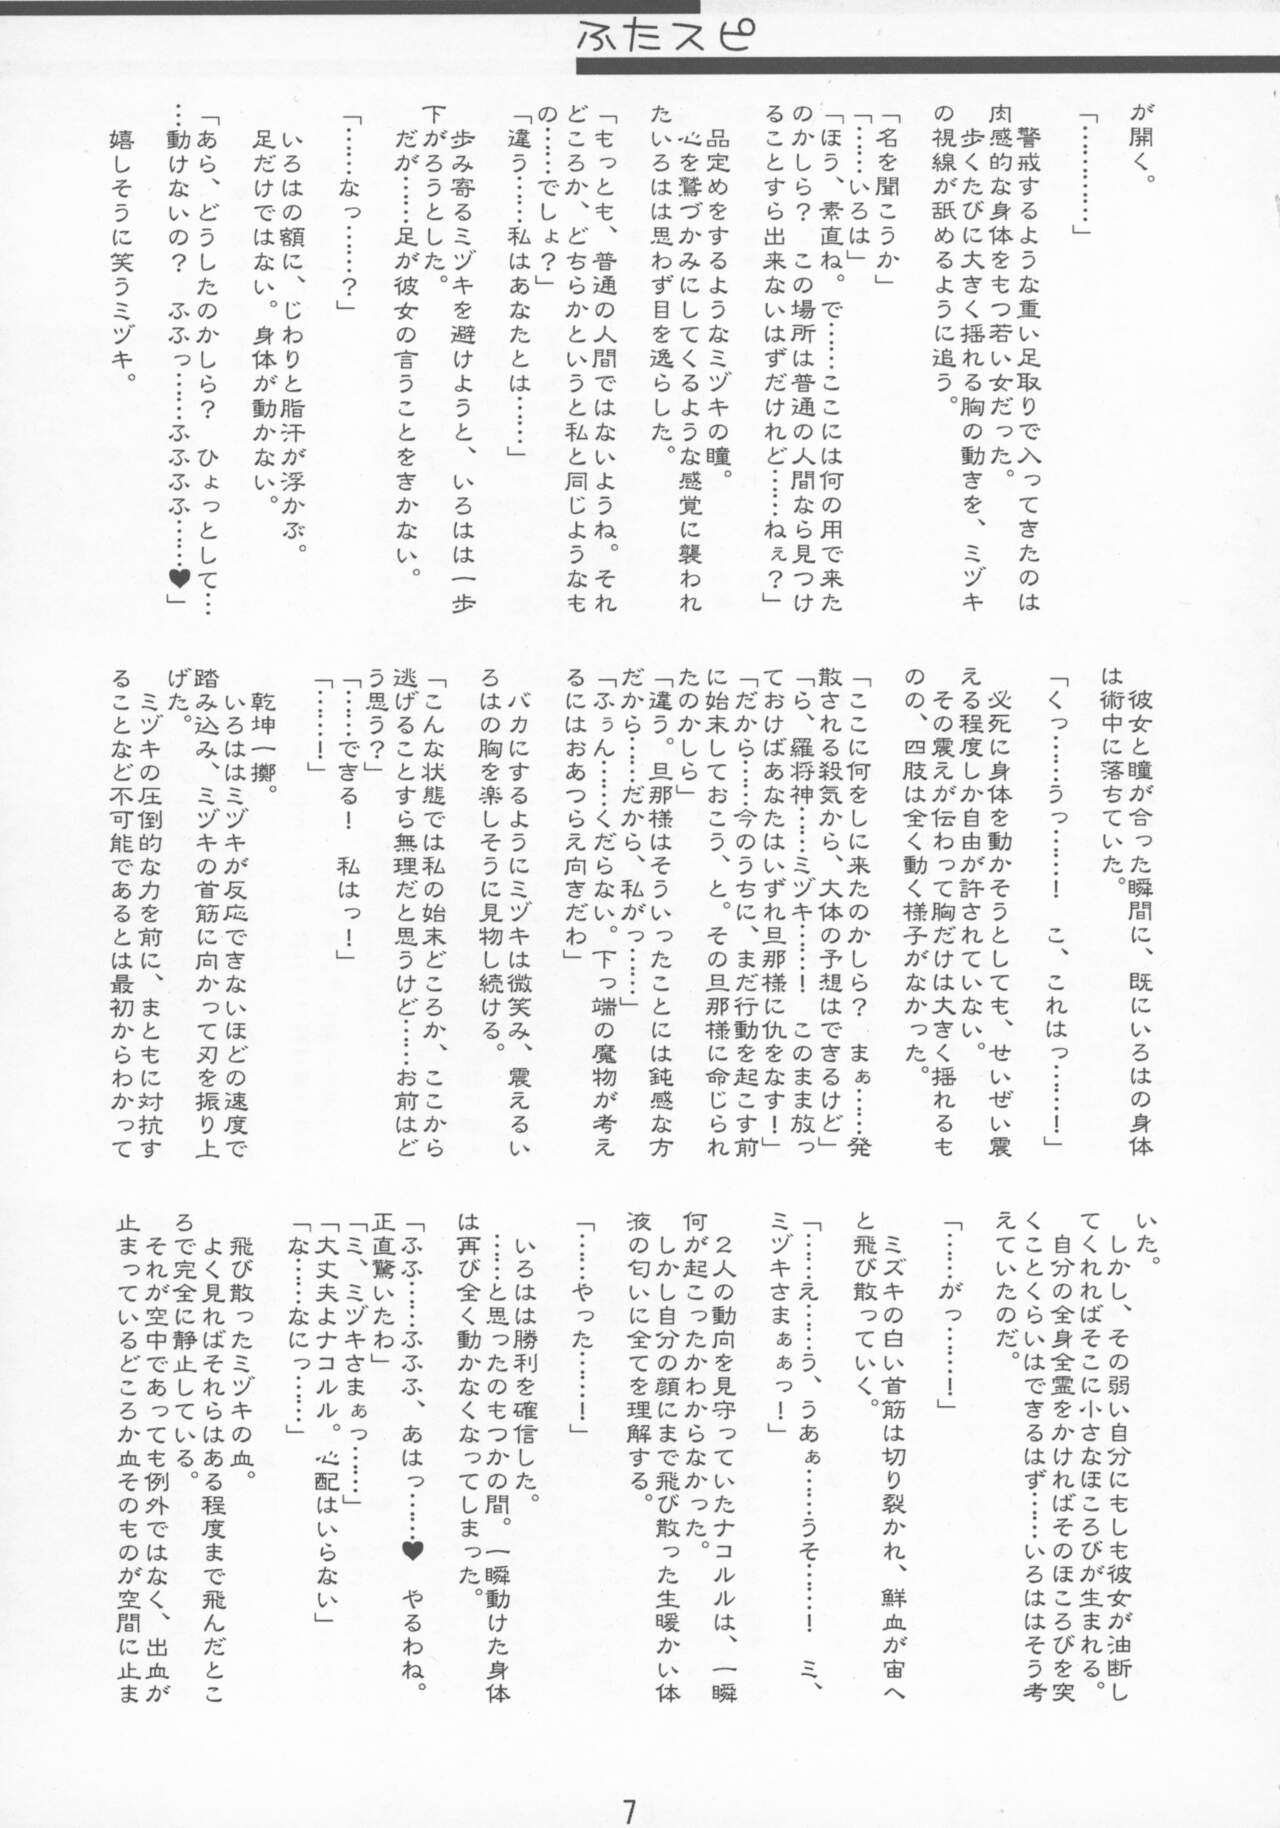 ふたスピ
が開く。
「…………」
　警戒するような重い足取りで入ってきたのは
肉感的な身体をもつ若い女だった。
　歩くたびに大きく揺れる胸の動きを、ミヅキ
の視線が舐めるように追う。
「名を聞こうか」
「……いろは」
「ほう、素直ね。で……ここには何の用で来た
のかしら？　この場所は普通の人間なら見つけ
ることすら出来ないはずだけれど……ねぇ？」
　品定めをするようなミヅキの瞳。
　心を鷲づかみにしてくるような感覚に襲われ
たいろはは思わず目を逸らした。
「もっとも、普通の人間ではないようね。それ
どころか、どちらかというと私と同じようなも
の……でしょ？」
「違う……私はあなたとは……」
　歩み寄るミヅキを避けようと、いろはは一歩
下がろうとした。
　だが……足が彼女の言うことをきかない。
「……なっ……？」
　いろはの額に、じわりと脂汗が浮かぶ。
　足だけではない。身体が動かない。
「あら、どうしたのかしら？　ひょっとして…
…動けないの？　ふふっ……ふふふふ……♥」
　嬉しそうに笑うミヅキ。
　彼女と瞳が合った瞬間に、既にいろはの身体
は術中に落ちていた。
「くっ……うっ……！　こ、これはっ……！」
　必死に身体を動かそうとしても、せいぜい震
える程度しか自由が許されていない。
　その震えが伝わって胸だけは大きく揺れるも
のの、四肢は全く動く様子がなかった。
「ここに何をしに来たのかしら？　まぁ……発
散される殺気から、大体の予想はできるけど」
「ら、羅将神……ミヅキ……！　このまま放っ
ておけばあなたはいずれ旦那様に仇をなす！」
「だから……今のうちに、まだ行動を起こす前
に始末しておこう、と。その旦那様に命じられ
たのかしら」
「違う。旦那様はそういったことには鈍感な方
だから……だから、私がっ……」
「ふぅん……くだらない。下っ端の魔物が考え
るにはおあつらえ向きだわ」
　バカにするようにミヅキは微笑み、震えるい
ろはの胸を楽しそうに見物し続ける。
「こんな状態では私の始末どころか、ここから
逃げることすら無理だと思うけど……お前はど
う思う？」
「……できる！　私はっ！」
「……！」
　乾坤一擲。
　いろははミヅキが反応できないほどの速度で
踏み込み、ミヅキの首筋に向かって刃を振り上
げた。
　ミヅキの圧倒的な力を前に、まともに対抗す
ることなど不可能であるとは最初からわかって
いた。
　しかし、その弱い自分にもしも彼女が油断し
てくれればそこに小さなほころびが生まれる。
　自分の全身全霊をかければそのほころびを突
くことくらいはできるはず……いろははそう考
えていたのだ。
「……がっ……！」
　ミズキの白い首筋は切り裂かれ、鮮血が宙へ
と飛び散っていく。
「……え……う、うあぁ……うそ……！　ミ、
ミヅキさまぁぁっ！」
　２人の動向を見守っていたナコルルは、一瞬
何が起こったかわからなかった。
　しかし自分の顔にまで飛び散った生暖かい体
液の匂いに全てを理解する。
「……やった……！」
　いろはは勝利を確信した。
　……と思ったのもつかの間。一瞬動けた身体
は再び全く動かなくなってしまった。
「ふふ……ふふふ、あはっ……♥　やるわね。
正直驚いたわ」
「ミ、ミヅキさまぁっ……」
「大丈夫よナコルル。心配はいらない」
「な……なにっ……」
　飛び散ったミヅキの血。
　よく見ればそれらはある程度まで飛んだとこ
ろで完全に静止している。
　それが空中であっても例外ではなく、出血が
止まっているどころか血そのものが空間に止ま
7